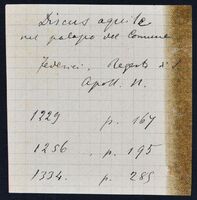 Discus aquile
nel palazzo del Comune
Federici, Regesto d. S.
Apoll. N.
1229 p. 167
1256 p. 195
1334. p. 285